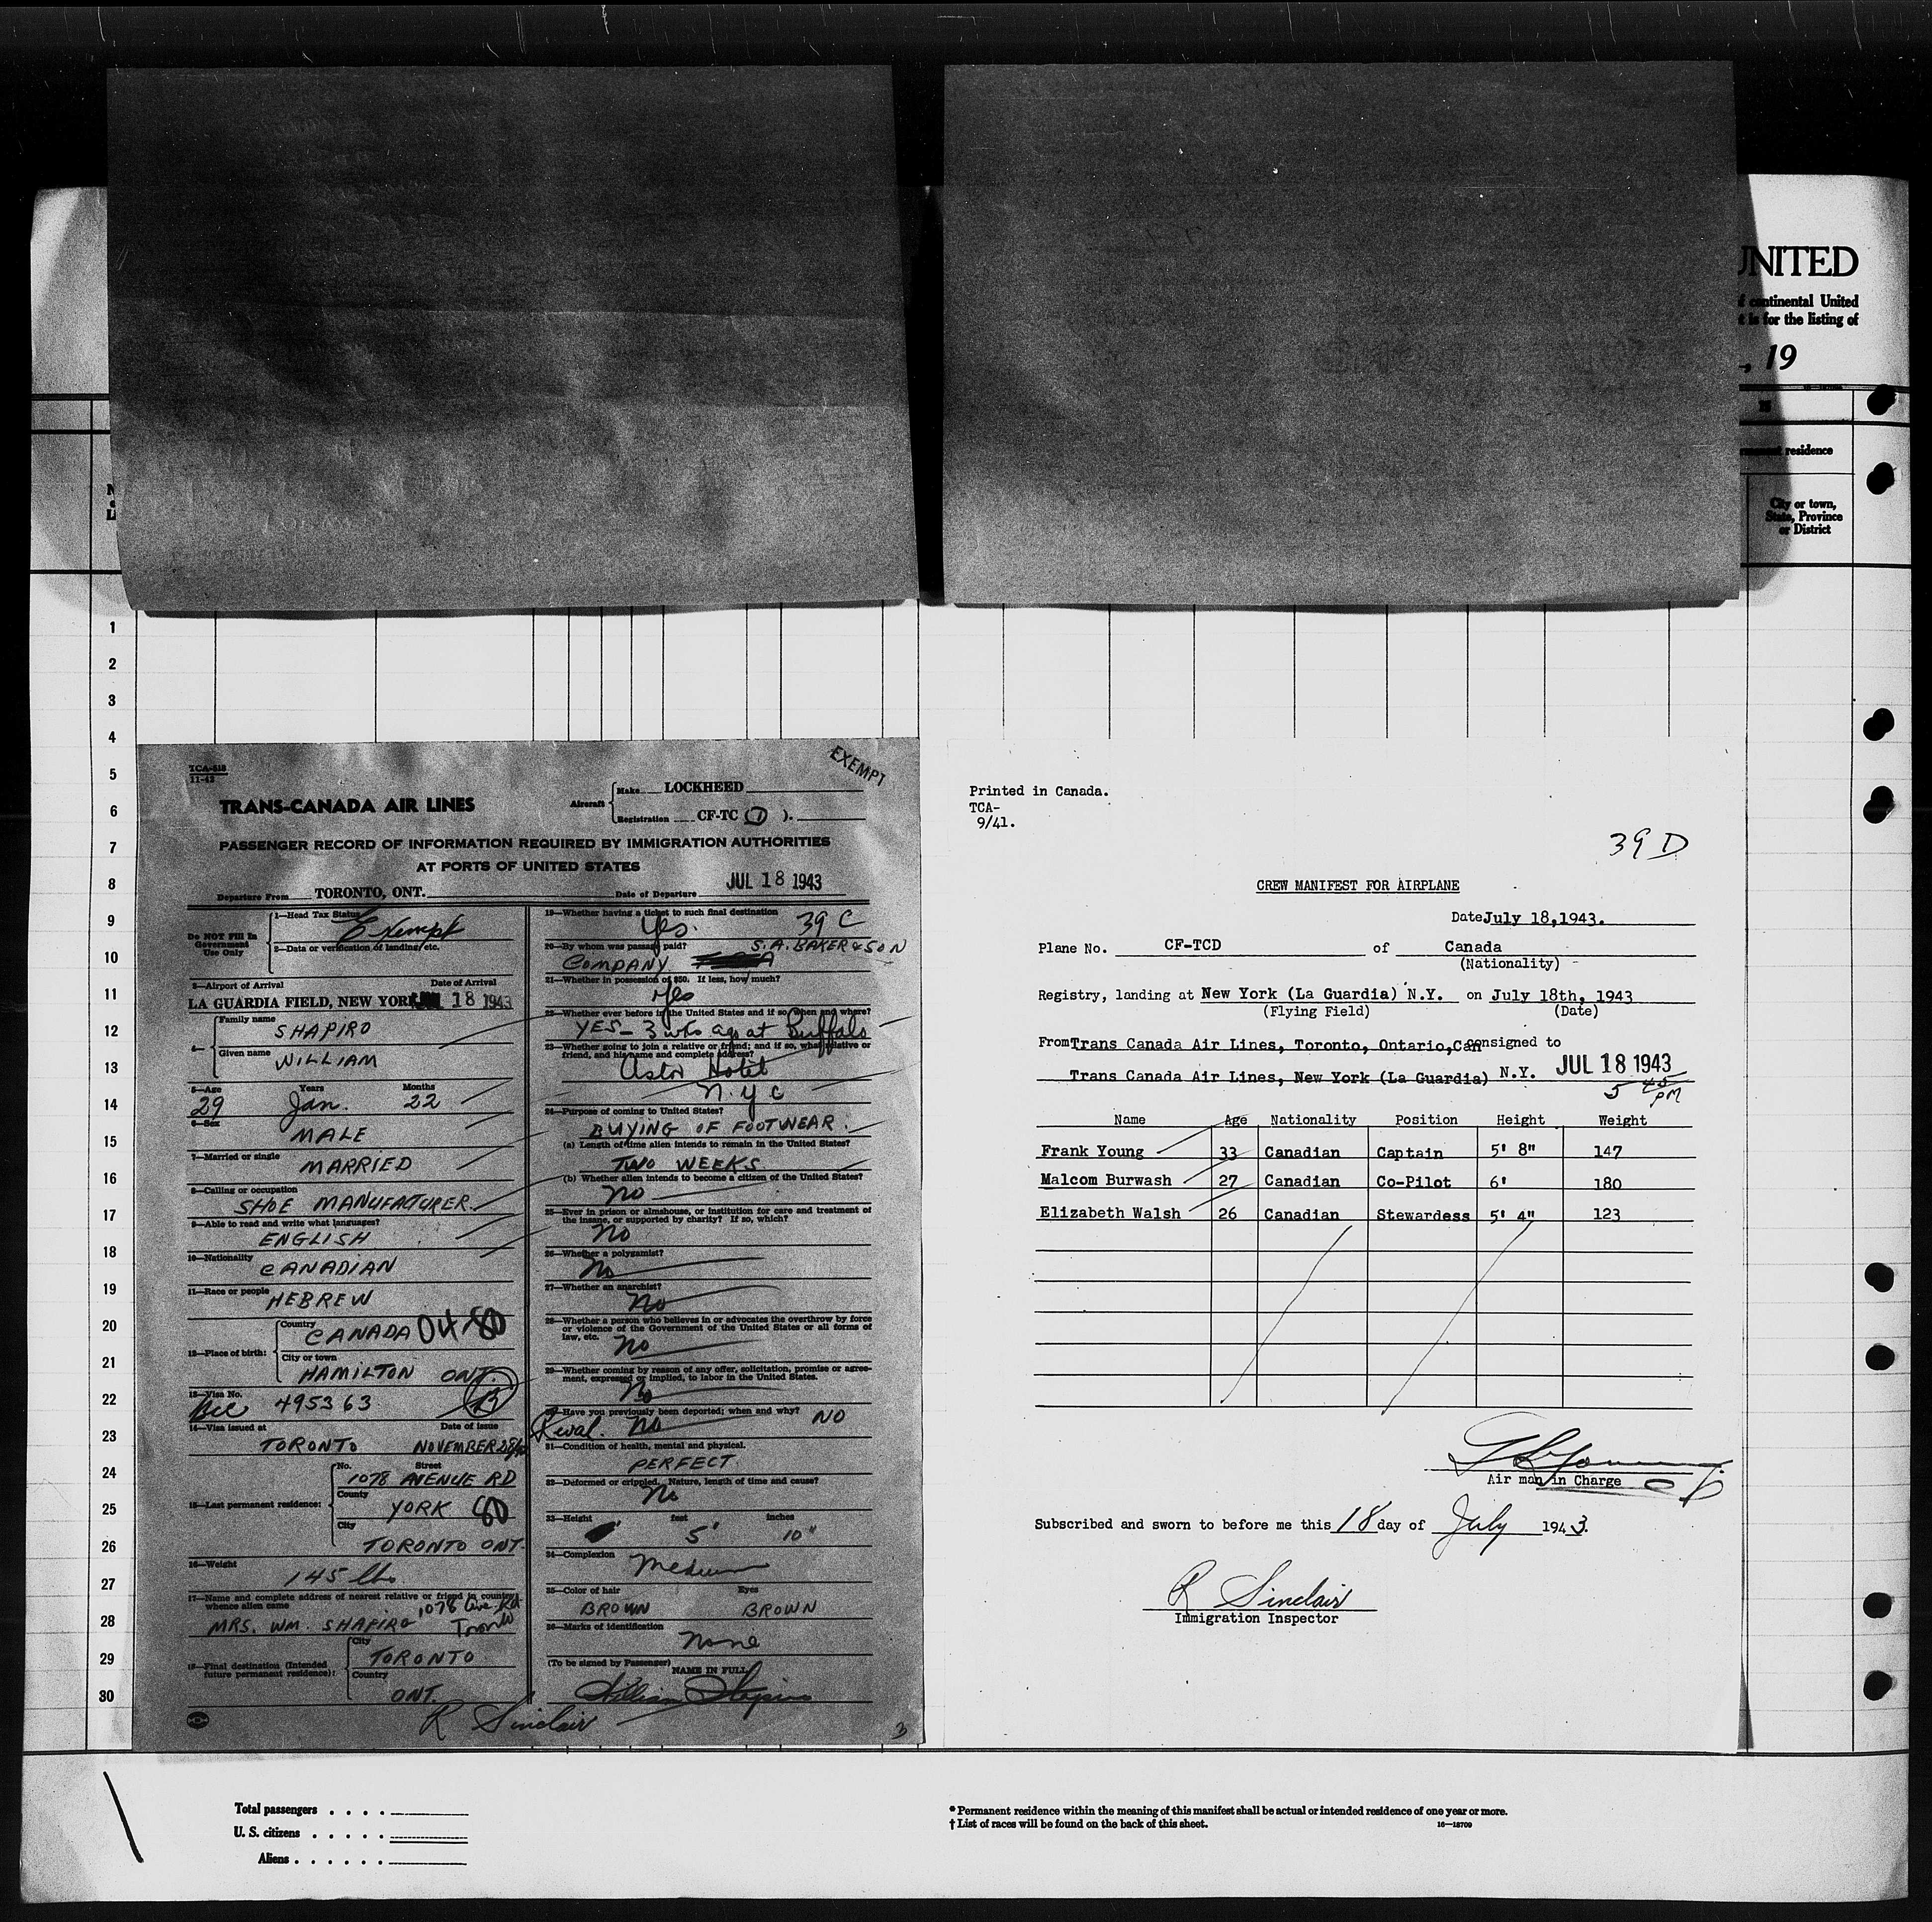 UNITED
continental United
t is for the listing of
, 19
residence
City or town,
State, Province
or District
1
2
3
4
5
6
7
8
9
10
11
12
13
14
15
16
17
18
19
20
21
22
23
24
25
26
27
28
29
30
TCA-
11-42
EXEMPT
TRANS-CANADA AIR LINES
Aircraft
Make LOCKHEED
Registration CF-TC ( D ).
PASSENGER RECORD OF INFORMATION REQUIRED BY IMMIGRATION AUTHORITIES
AT PORTS OF UNITED STATES
Departure From TORONTO, ONT. Date of Departure JUL 18 1943
Do NOT Fill In Government Use Only
1—Head Tax Status Exempt
2—Data or verification of landing, etc.
3—Airport of Arrival Date of Arrival
LA GUARDIA FIELD, NEW YORK 18 1943
4—
Family name SHAPIRO
Given name WILLIAM
5—Age Years Months
29 Jan. 22
6—Sex
MALE
7—Married or single
MARRIED
8—Calling or occupation
SHOE MANUFACTURER
9—Able to read and write what languages?
ENGLISH
10—Nationality
CANADIAN
11—Race or people
HEBREW
12—Place of birth:
Country CANADA
City or town
HAMILTON ONT.
13—Visa No.
495363
14—Visa issued at Date of issue
TORONTO NOVEMBER
15—Last permanent residence:
No. Street
1078 AVENUE RD
County
YORK
City
TORONTO ONT.
16—Weight
145 lbs
17—Name and complete address of nearest relative or friend in country
whence alien came
MRS. WM. SHAPIRO 1078 Ave. Rd
Toronto
18—Final destination (Intended
future permanent residence):
City
TORONTO
Country
ONT.
R Sinclair
19—Whether having a ticket to such final destination
Yes. 39 C
20—By whom was passage paid? S. A. BAKER & SON
COMPANY
21—Whether in possession of $50. If less, how much?
Yes
22—Whether ever before in the United States and if so, when and where?
YES — 3 wks ago at Buffalo
23—Whether going to join a relative or friend; and if so, what relative or
friend, and his name and complete address?
Astor Hotel
N.Y.C
24—Purpose of coming to United States?
BUYING OF FOOTWEAR.
(a) Length of time alien intends to remain in the United States?
TWO WEEKS
(b) Whether alien intends to become a citizen of the United States?
No
25—Ever in prison or almshouse, or institution for care and treatment of
the insane, or supported by charity? If so, which?
No
26—Whether a polygamist?
No
27—Whether an anarchist?
No
28—Whether a person who believes in or advocates the overthrow by force
or violence of the Government of the United States or all forms of
law, etc.
No
29—Whether coming by reason of any offer, solicitation, promise or agree-
ment, expressed or implied, to labor in the United States.
No
30—Have you previously been deported; when and why? NO
No
31—Condition of health, mental and physical.
PERFECT
32—Deformed or crippled. Nature, length of time and cause?
No
33—Height feet inches
5' 10"
34—Complexion
Medium
35—Color of hair Eyes
BROWN BROWN
36—Marks of identification
None
(To be signed by Passenger) NAME IN FULL
William Shapiro
3
Printed in Canada.
TCA-
9/41.
39 D
CREW MANIFEST FOR AIRPLANE
Date July 18,1943.
Plane No. CF-TCD of Canada
(Nationality)
Registry, landing at New York (La Guardia) N.Y. on July 18th, 1943
(Flying Field) (Date)
From Trans Canada Air Lines, Toronto, Ontario,Can consigned to
Trans Canada Air Lines, New York (La Guardia) N.Y. JUL 18 1943
5 45 PM
Name Age Nationality Position Height Weight
Frank Young 33 Canadian Captain 5' 8" 147
Malcom Burwash 27 Canadian Co-Pilot 6' 180
Elizabeth Walsh 26 Canadian Stewardess 5' 4" 123
Air man in Charge
Subscribed and sworn to before me this 18 day of July 1943.
R Sinclair
Immigration Inspector
Total passengers . . . .
U. S. citizens . . . . .
Aliens . . . . . .
* Permanent residence within the meaning of this manifest shall be actual or intended residence of one year or more.
† List of races will be found on the back of this sheet. 16—18709